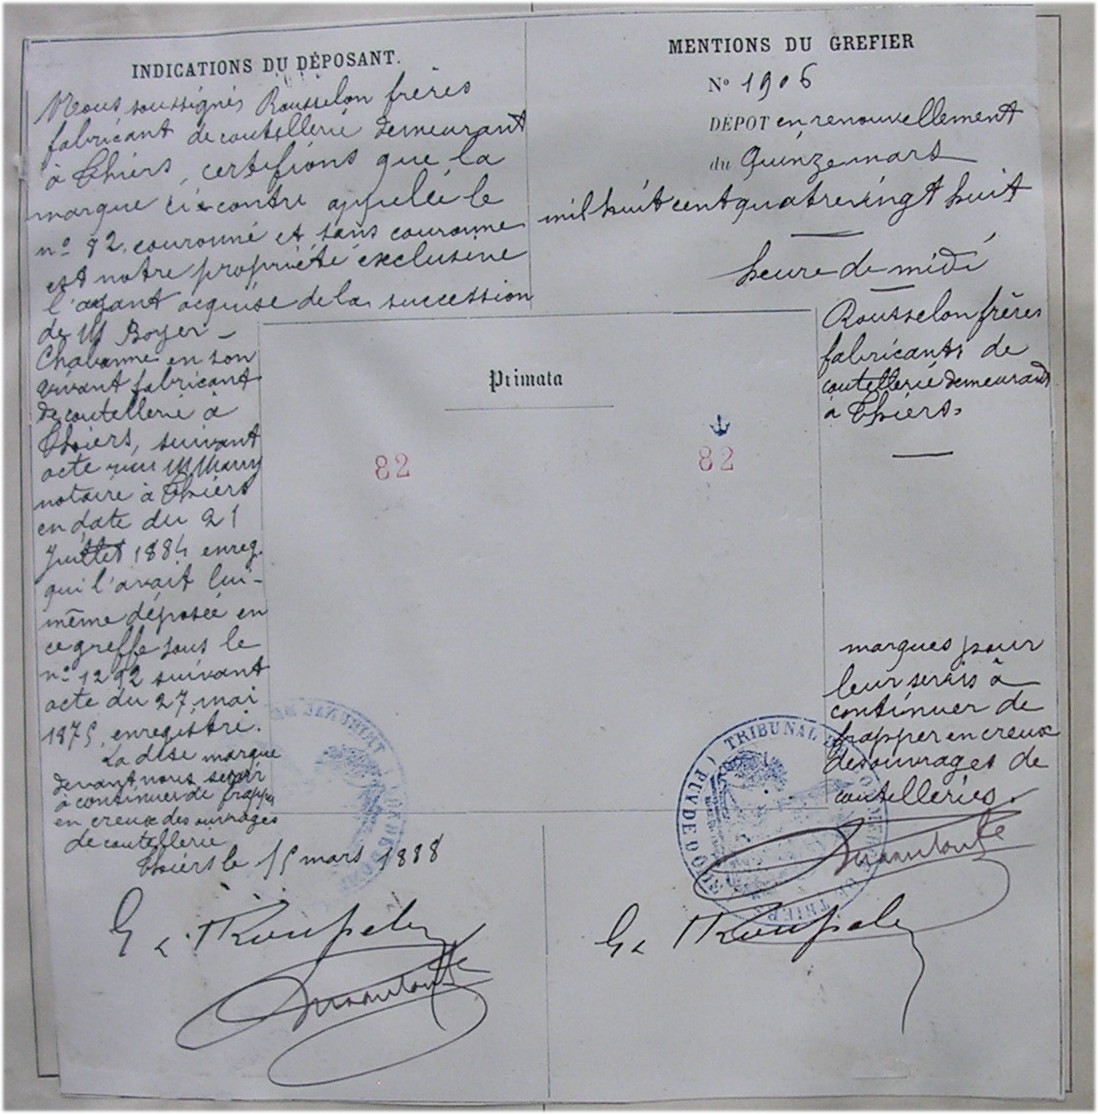 INDICATIONS DU DÉPOSANT.
Nous soussignés Rousselon frères
fabricant de coutellerie demeurant
à Thiers, certifions que la
marque ci-contre appelée le
n° 82 couronné et sans couronne
est notre propriété exclusive
l'ayant acquise de la succession
de M Boyer-
Chabanne en son
vivant fabricant
de coutellerie à
Thiers, suivant
acte reçu M
notaire à Thiers
en date du 21
juillet 1884 enreg.
qui l'avait lui-
même déposée en
ce greffe sous le
n° 1292 suivant
acte du 27 mai
1875, enregistré.
La dise marque
devant nous servir
à continuer de frapper
en creux des ouvrages
de coutellerie
Thiers le 15 mars 1888
MENTIONS DU GREFIER
N° 1906
DÉPOT en renouvellement
du Quinze mars
mil huit cent quatre vingt huit
heure de midi
Rousselon frères
fabricants de
coutellerie demeurant
à Thiers.
Primata
82
82
marques pour
leur servir à
continuer de
frapper en creux
des ouvrages de
coutelleries.
TRIBUNAL DE COMMERCE DE THIERS (PUY DE DOME)